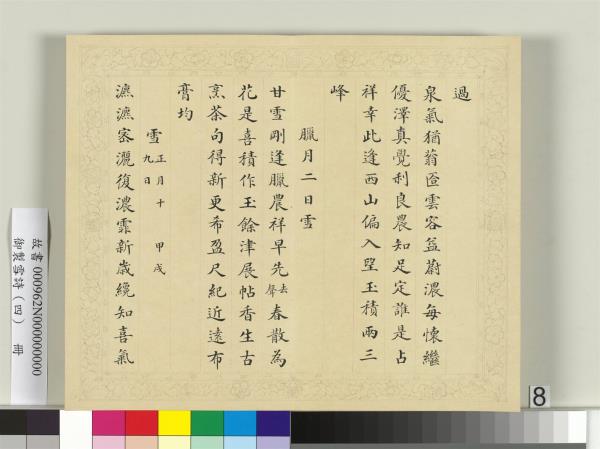 過
泉氣猶蓊匼雲容益蔚濃每懷繼
優澤真覺利良農知足定誰是占
祥幸此逢西山偏入望玉積兩三
峰
臘月二日雪
甘雪剛逢臘農祥早先去聲春散為
花是喜積作玉餘津展帖香生古
烹茶句得新更希盈尺紀近遠布
膏均
雪正月十九日 甲戌
漉漉密灑復濃霏新歲纔知喜氣
故書000962N000000000
御製雪詩（四） 冊
8